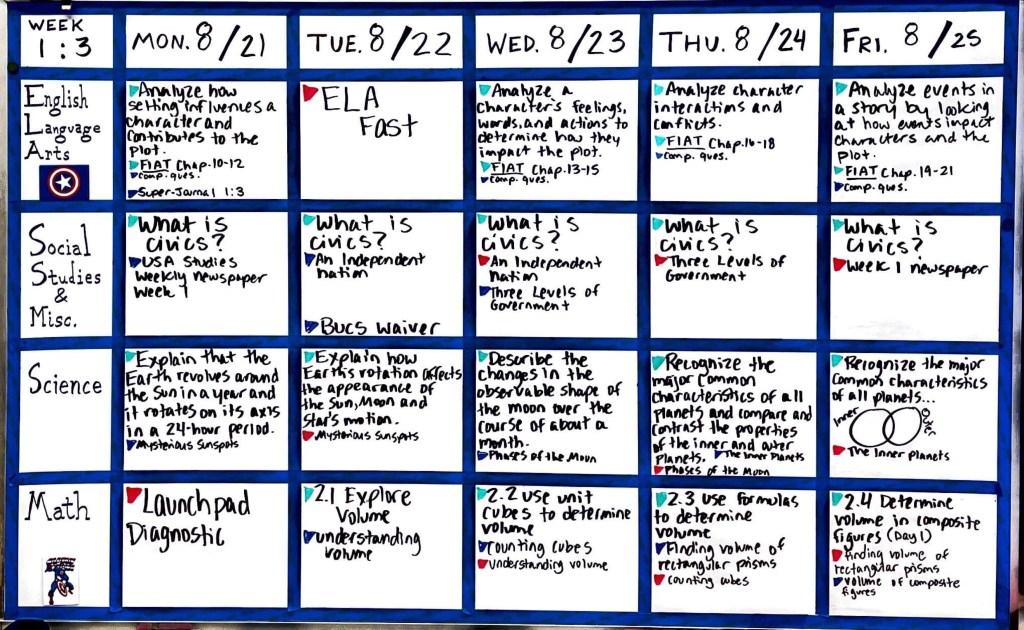 WEEK
1:3
MON. 8/21
TUE. 8/22
WED. 8/23
THU. 8/24
FRI. 8/25
English
Language
Arts
Analyze how
setting influences a
character and
contributes to the
plot.
FIAT Chap. 10-12
comp. ques.
Super-Journal 1:3
ELA
Fast
Analyze a
character's feelings,
words, and actions to
determine how they
impact the plot.
FIAT Chap. 13-15
comp. ques.
Analyze character
interactions and
conflicts.
FIAT Chap. 16-18
comp. ques.
Analyze events in
a story by looking
at how events impact
characters and the
plot.
FIAT Chap. 19-21
comp. ques.
Social
Studies
&
Misc.
What is
civics?
USA Studies
Weekly newspaper
Week 1
What is
civics?
An Independent
nation
Bucs Waiver
What is
civics?
An Independent
nation
Three Levels of
Government
What is
civics?
Three Levels of
Government
What is
civics?
Week 1 newspaper
Science
Explain that the
Earth revolves around
the Sun in a year and
it rotates on its axis
in a 24-hour period.
Mysterious Sunspots
Explain how
Earth's rotation affects
the appearance of
the Sun, Moon and
Star's motion.
Mysterious Sunspots
Describe the
changes in the
observable shape of
the moon over the
course of about a
month.
Phases of the Moon
Recognize the
major common
characteristics of all
planets and compare and
contrast the properties
of the inner and outer
planets. The Inner Planets
Phases of the Moon
Recignize the major
common characteristics
of all planets...
Inner
Outer
The Inner planets
Math
Launchpad
Diagnostic
2.1 Explore
Volume
understanding
volume
2.2 use unit
cubes to determine
volume
counting cubes
understanding volume
2.3 use formulas
to determine
volume
Finding volume of
rectangular prisms
counting cubes
2.4 Determine
volume in composite
figures (Day 1)
finding volume of
rectangular prisms
volume of composite
figures